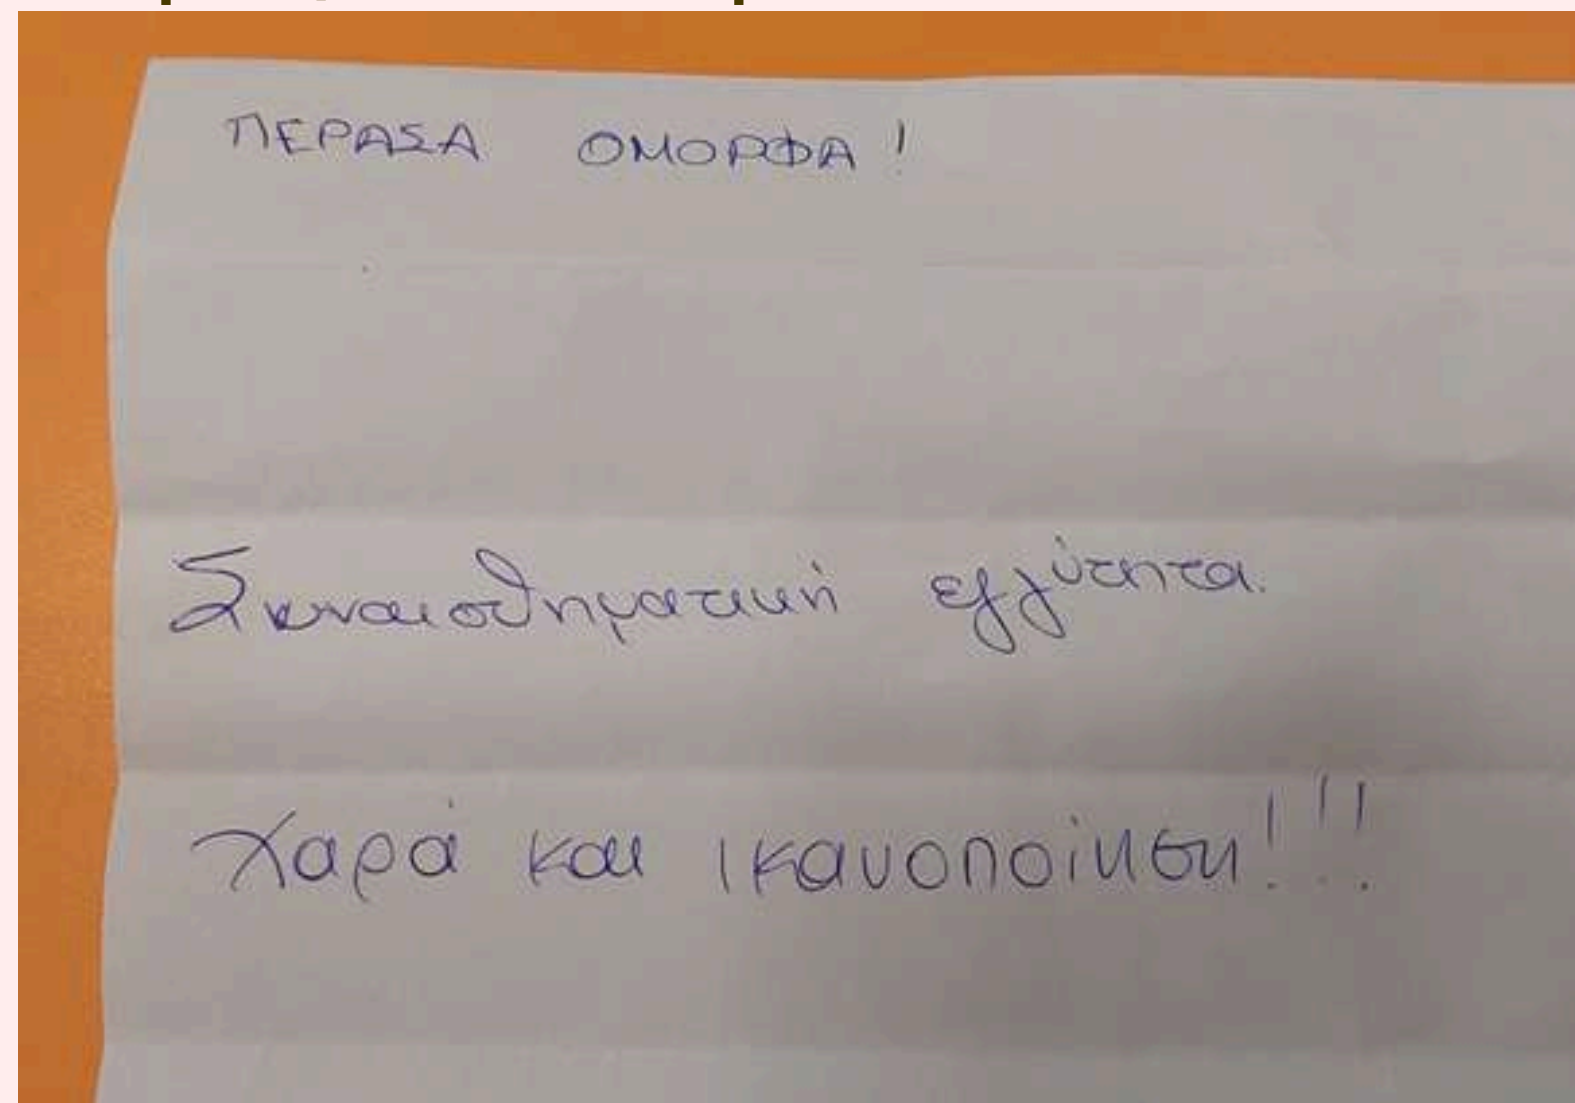 ΠΕΡΑΣΑ ΟΜΟΡΦΑ!
Συναισθηματική εγγύτητα.
Χαρά και ικανοποίηση!!!